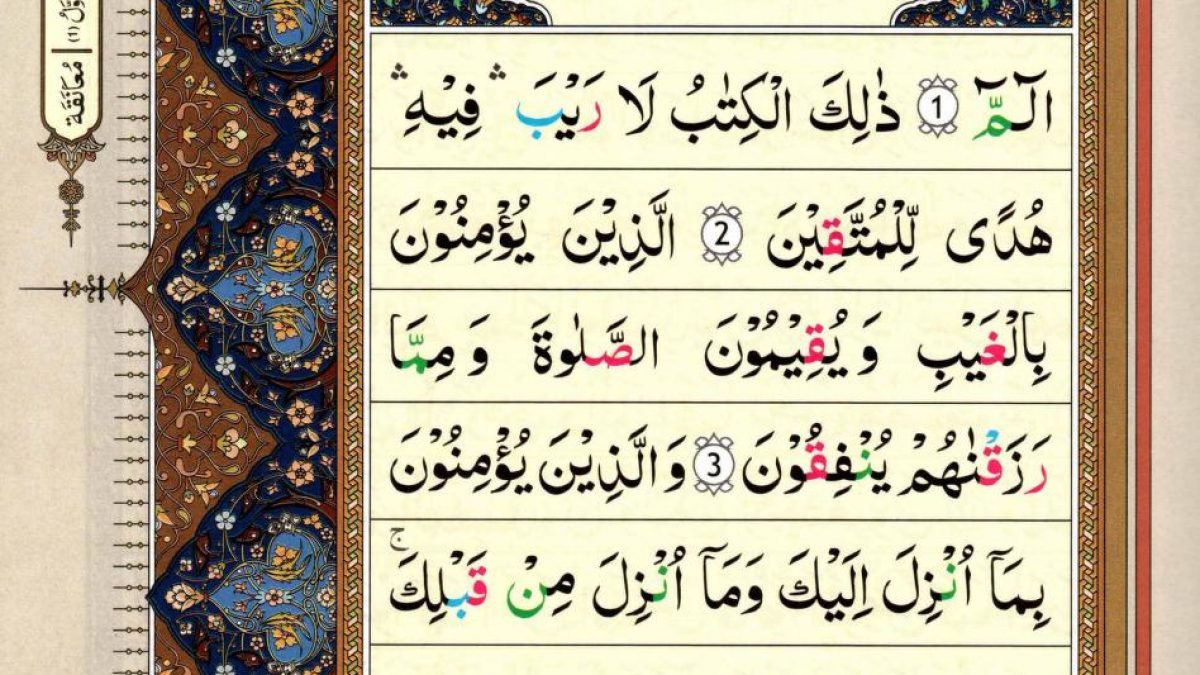 الٓـمّٓ 1 ذٰلِكَ الْكِتٰبُ لَا رَيْبَ ۛ فِيْهِ ۛ
هُدًى لِّلْمُتَّقِيْنَ 2 الَّذِيْنَ يُؤْمِنُوْنَ
بِالْغَيْبِ وَ يُقِيْمُوْنَ الصَّلٰوةَ وَ مِمَّا
رَزَقْنٰهُمْ يُنْفِقُوْنَ 3 وَالَّذِيْنَ يُؤْمِنُوْنَ
بِمَآ اُنْزِلَ اِلَيْكَ وَمَآ اُنْزِلَ مِنْ قَبْلِكَ ۚ
مُعَانَقَة (1)